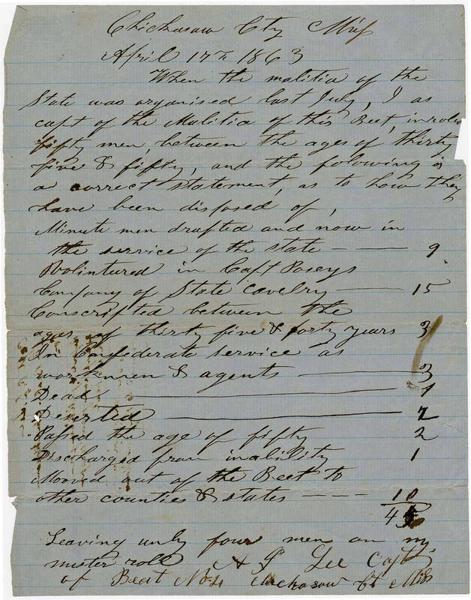 Chickasaw City Miss
April 17th 1863
When the malitia of the
State was organised last July, I as
capt of the Malitia of this Beet, inroled
fifty men, between the ages of thirty
five & fifty, and the folowing is
a correct statement, as to how they
have been disposed of,
Minute men drafted and now in
the service of the state — 9
Volintured in Capt Poseys
Company of State cavelry — 15
Conscripted between the
ages of thirty five & forty years 3
In Confederate service as
workmen & agents — 3
Dead — 1
Deserted — 2
Passed the age of fifty 2
Discharged from inability 1
Mooved out of the Beet to
other counties & states — 10
Leaving only four men on my
muster roll A P Lee Capt
of Beet No 4 Chickasaw Ct Miss